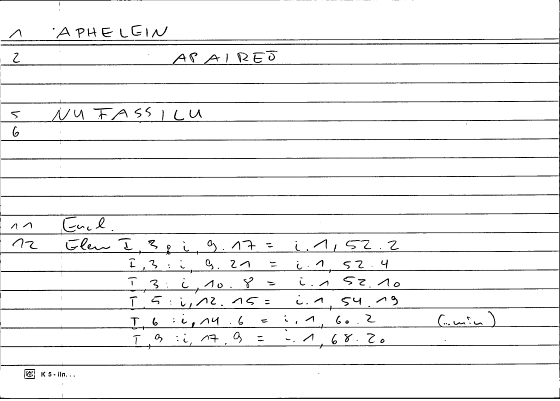 1 APHELEIN
2 APAIREO
5 NUFASSILU
6
11 Eucl.
12 Elem I, 3 : i, 9.17 = i.1, 52.2
I, 3 : i, 9.21 = i.1, 52.4
I, 3 : i, 10.8 = i.1, 52.10
I, 5 : i, 12.15 = i.1, 54.19
I, 6 : i, 14.6 = i.1, 60.2 (..min)
I, 9 : i, 17.9 = i.1, 68.20
K 5 - lin...